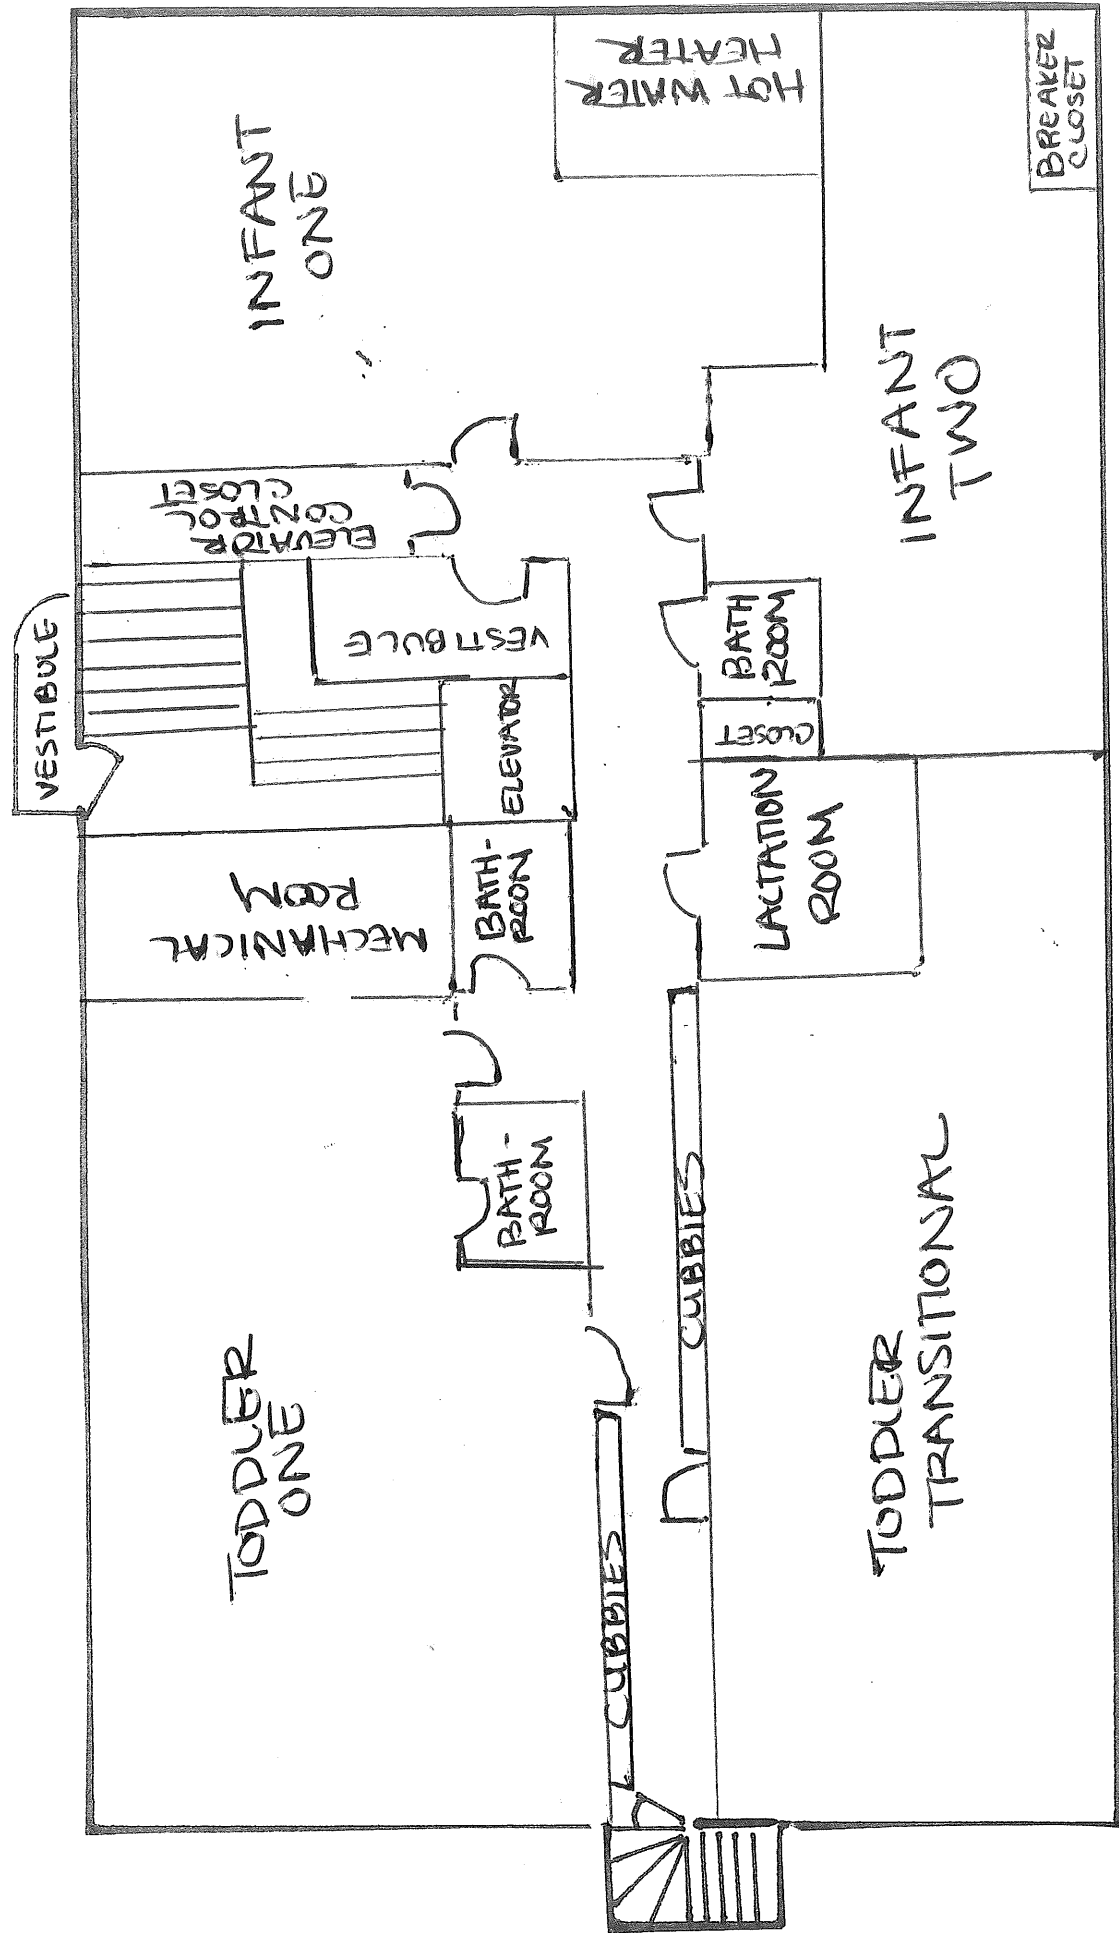 HOT WATER
HEATER
BREAKER
CLOSET
INFANT
ONE
INFANT
TWO
ELEVATOR
CONTROL
CLOSET
VESTIBULE
VESTIBULE
BATH
ROOM
ELEVATOR
CLOSET
LACTATION
ROOM
MECHANICAL
ROOM
BATH-
ROOM
BATH-
ROOM
CUBBIES
TODDLER
ONE
TODDLER
TRANSITIONAL
CUBBIES